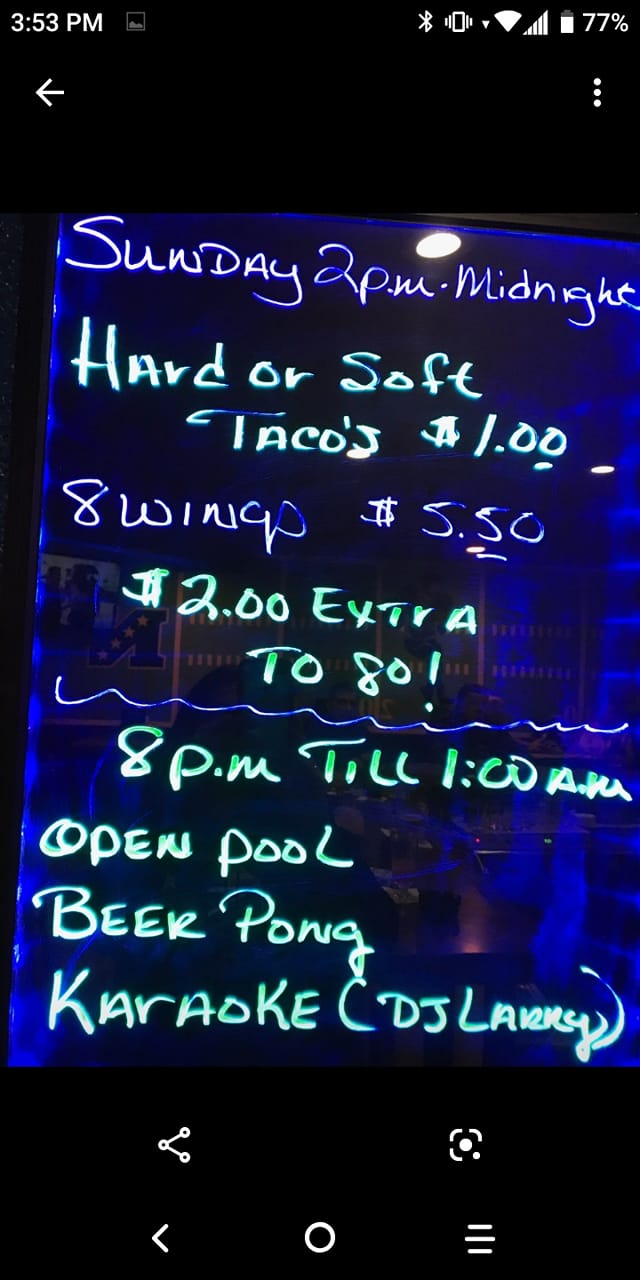 3:53 PM
77%
SUNDAY 2p.m. Midnight
HArd or Soft
TACO'S $1.00
8 WINGS $5.50
$2.00 EXTrA
TO GO!
8 p.m TILL 1:00 A.m
OPEN POOL
BEER PONG
KArAOKE (DJ LARRy)